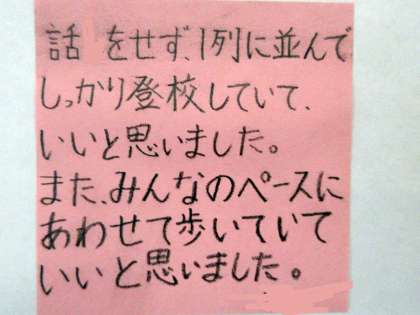 話をせず、1列に並んで
しっかり登校していて、
いいと思いました。
また、みんなのペースに
あわせて歩いていて
いいと思いました。